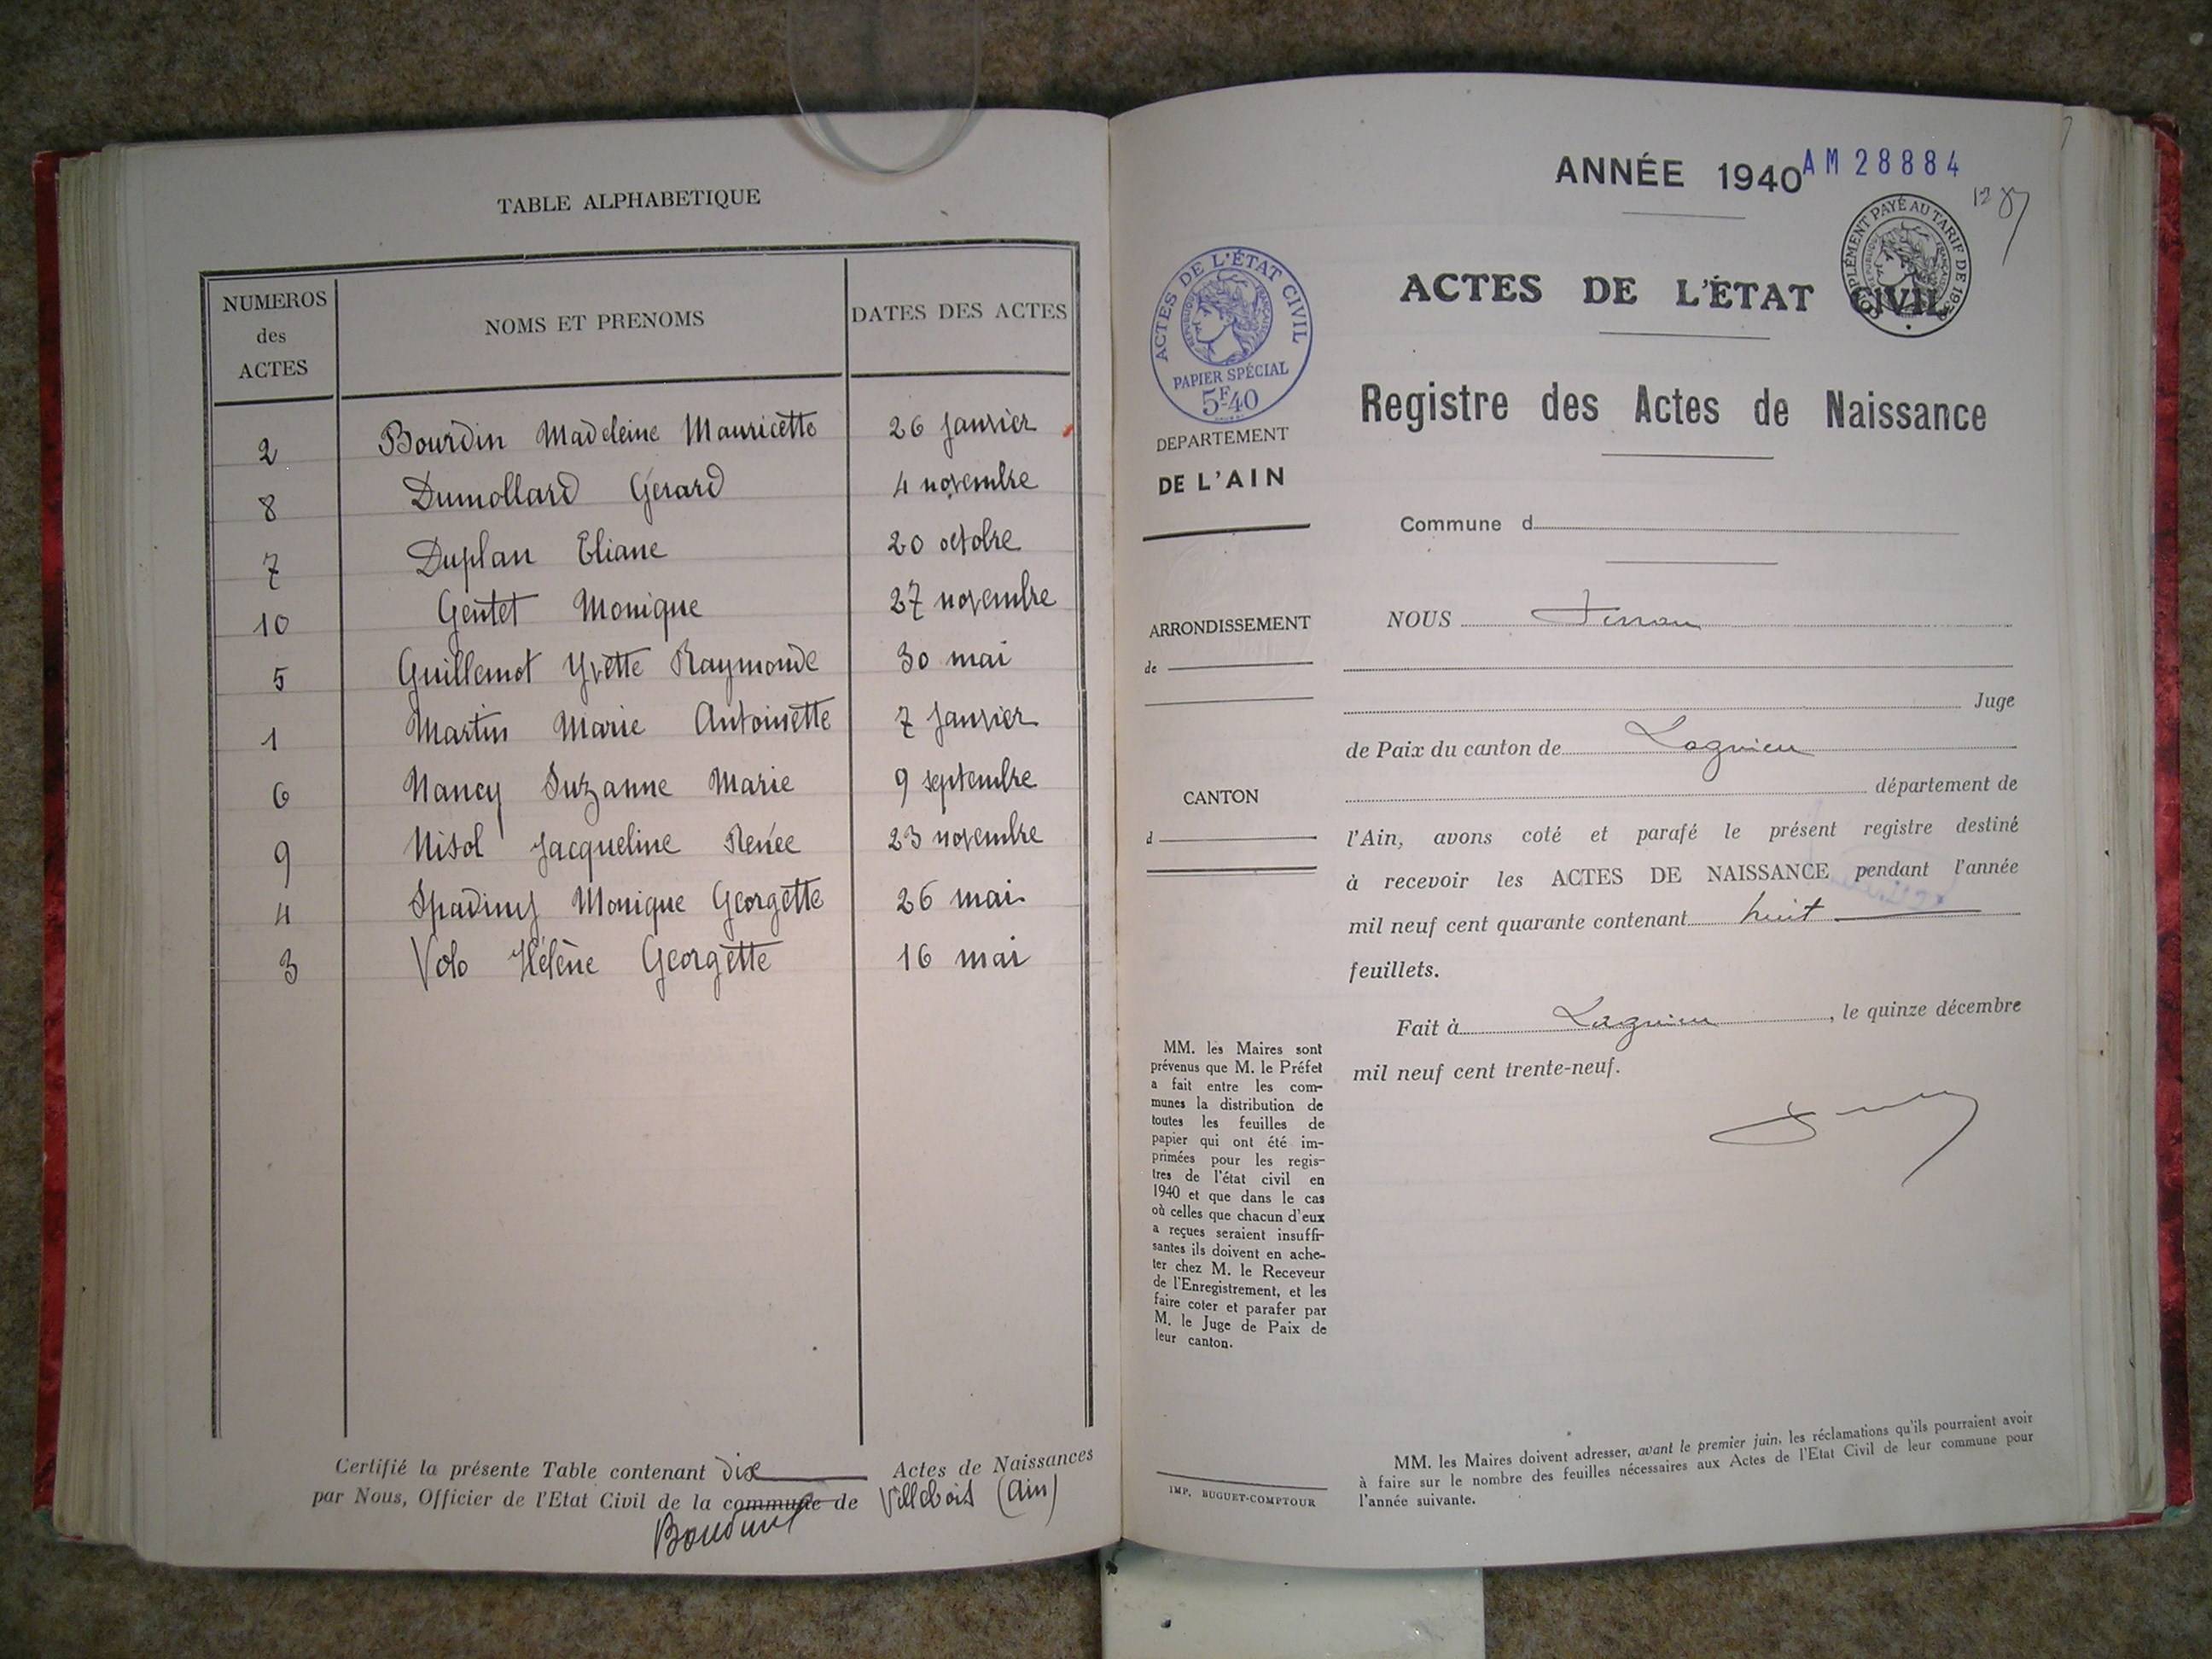 TABLE ALPHABETIQUE
NUMEROS
des
ACTES
NOMS ET PRENOMS
DATES DES ACTES
2 Bourdin Madeleine Mauricette 26 janvier
8 Dumollard Gérard 4 novembre
7 Duplan Eliane 20 octobre
10 Gentet Monique 27 novembre
5 Guillemot Yvette Raymonde 30 mai
1 Martin Marie Antoinette 7 janvier
6 Nancy Suzanne Marie 9 septembre
9 Nisol Jacqueline Renée 23 novembre
4 Monique Georgette 26 mai
3 Volo Hélène Georgette 16 mai
Certifié la présente Table contenant dix Actes de Naissances
par Nous, Officier de l'Etat Civil de la commune de Villebois (Ain)
ANNÉE 1940
AM 28884
SUPPLÉMENT PAYÉ AU TARIF DE 1939
ACTES DE L'ÉTAT CIVIL
RÉPUBLIQUE FRANÇAISE
PAPIER SPÉCIAL
5F40
ACTES DE L'ÉTAT CIVIL
Registre des Actes de Naissance
DEPARTEMENT
DE L'AIN
Commune d
ARRONDISSEMENT
de
CANTON
d
NOUS
Juge
de Paix du canton de Lagnieu
département de
l'Ain, avons coté et parafé le présent registre destiné
à recevoir les ACTES DE NAISSANCE pendant l'année
mil neuf cent quarante contenant huit
feuillets.
Fait à Lagnieu, le quinze décembre
mil neuf cent trente-neuf.
MM. les Maires sont
prévenus que M. le Préfet
a fait entre les com-
munes la distribution de
toutes les feuilles de
papier qui ont été im-
primées pour les regis-
tres de l'état civil en
1940 et que dans le cas
où celles que chacun d'eux
a reçues seraient insuffi-
santes ils doivent en ache-
ter chez M. le Receveur
de l'Enregistrement, et les
faire coter et parafer par
M. le Juge de Paix de
leur canton.
IMP. BUGUET-COMPTOUR
MM. les Maires doivent adresser, avant le premier juin, les réclamations qu'ils pourraient avoir
à faire sur le nombre des feuilles nécessaires aux Actes de l'Etat Civil de leur commune pour
l'année suivante.